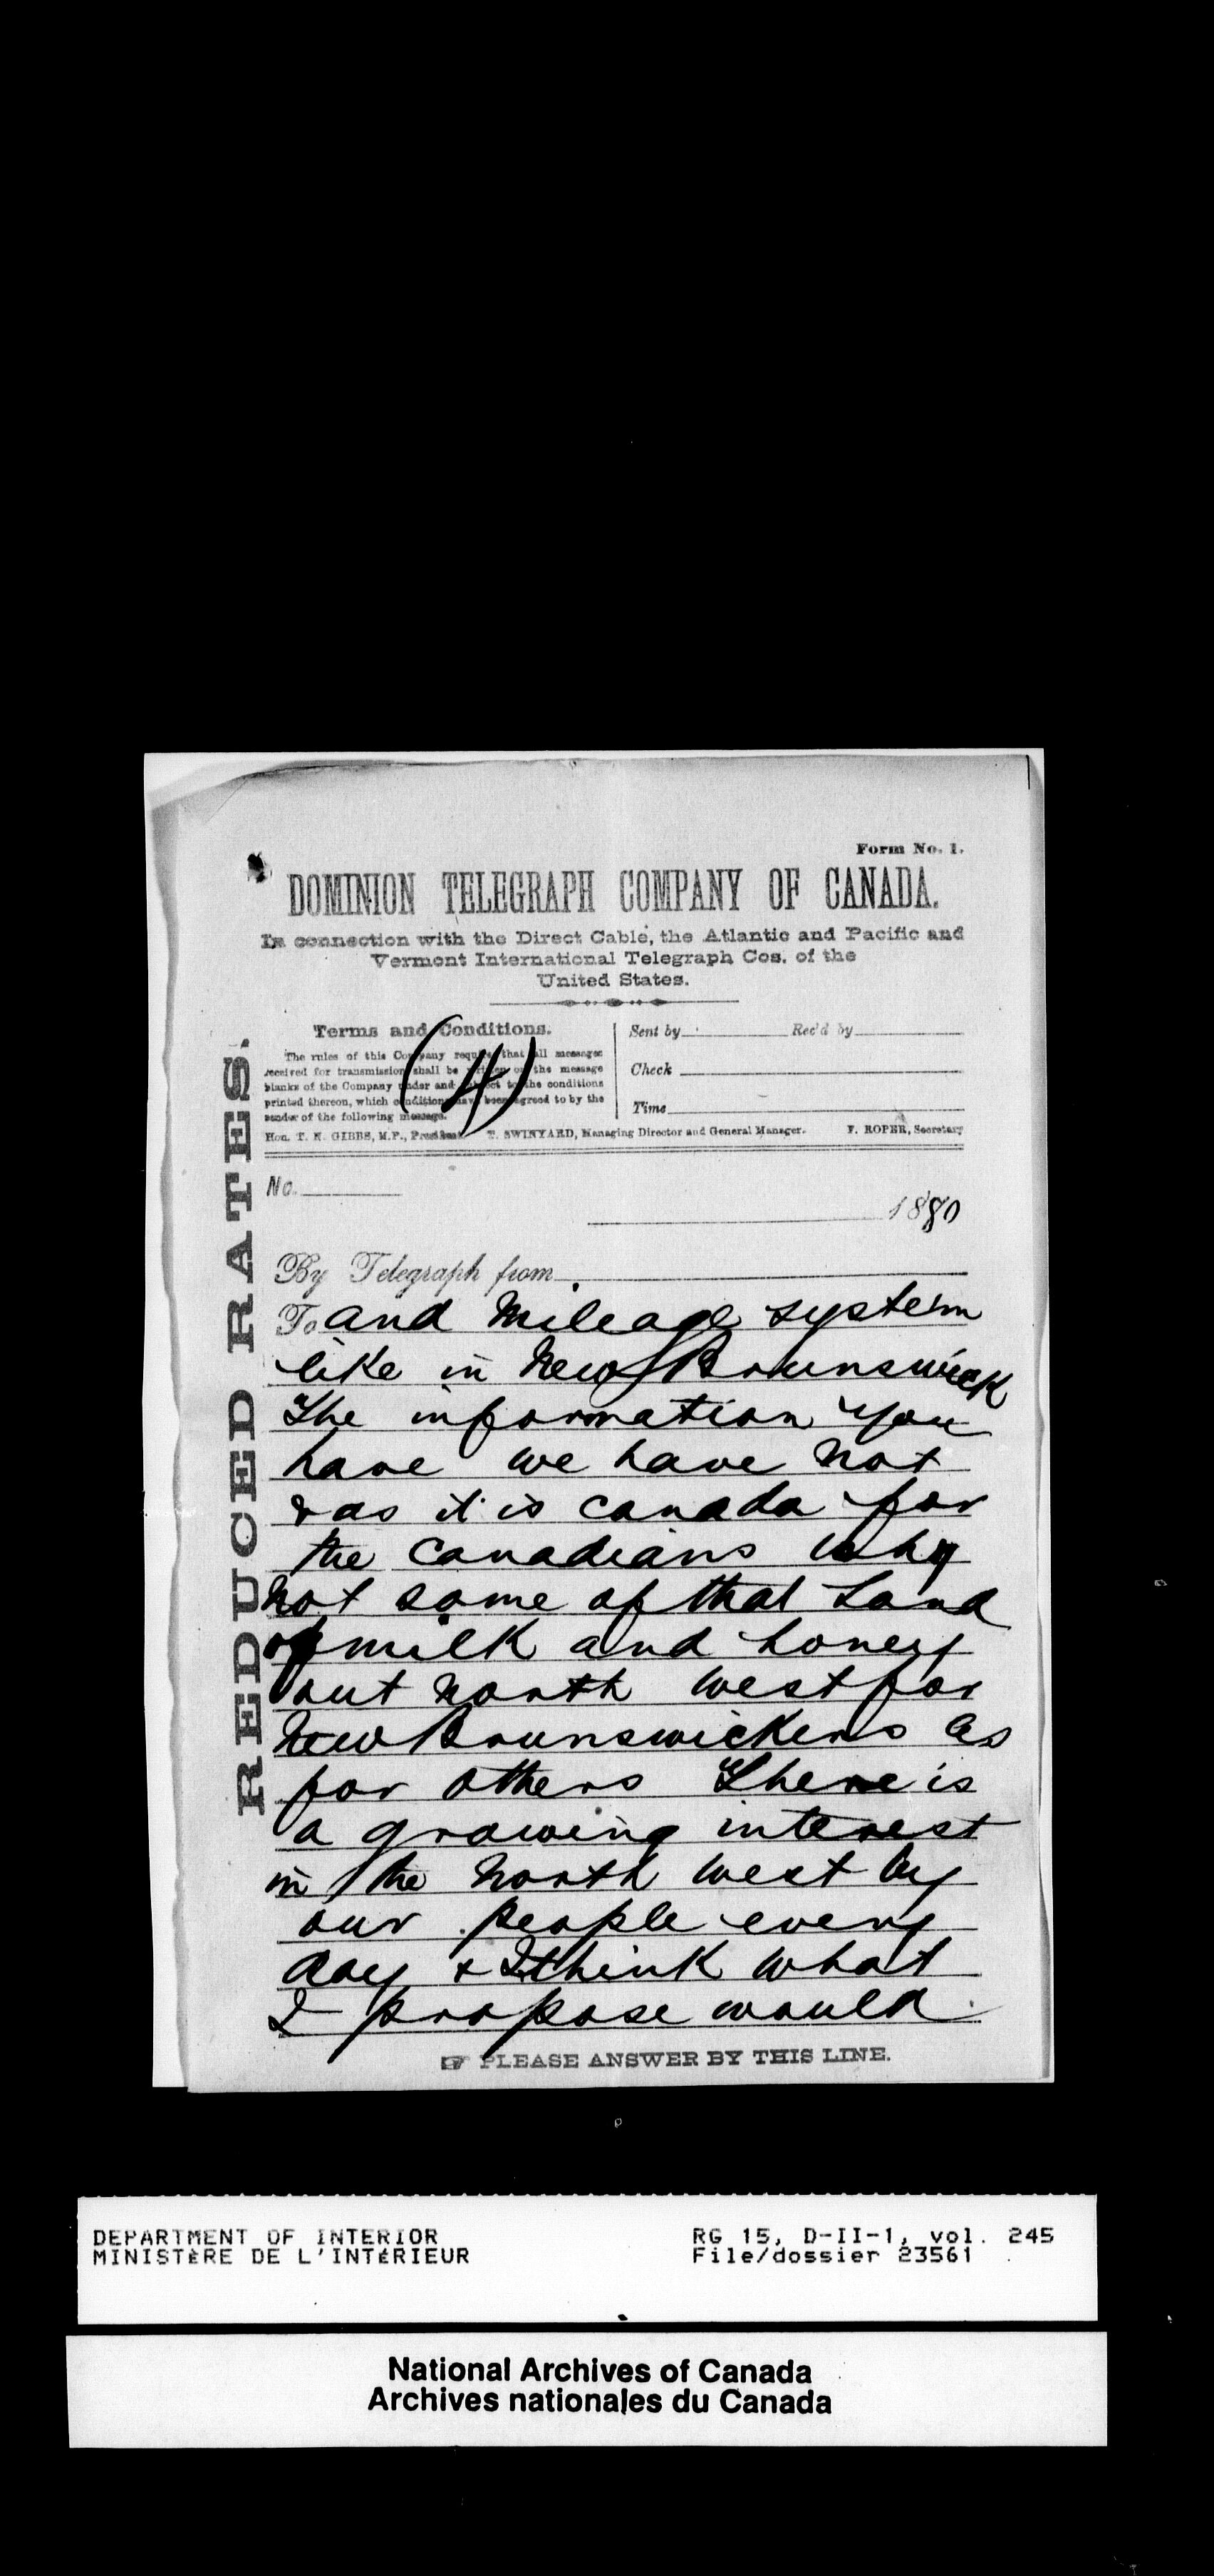 Form No. 1.
DOMINION TELEGRAPH COMPANY OF CANADA.
In connection with the Direct Cable, the Atlantic and Pacific and
Vermont International Telegraph Cos. of the
United States.
REDUCED RATES.
Terms and Conditions.
The rules of this Company require that all messages
received for transmission shall be written on the message
blanks of the Company under and subject to the conditions
printed thereon, which conditions have been agreed to by the
sender of the following message.
(4)
Sent by Rec'd by
Check
Time
Hon. T. N. GIBBS, M.P., President. T. SWINYARD, Managing Director and General Manager. F. ROPER, Secretary
No.
1880
By Telegraph from
To and Mileage system
like in New Brunswick
The information you
have we have not
& as it is Canada for
the Canadians Why
not some of that Land
of milk and honey
out North West for
New Brunswickers as
for others There is
a growing interest
in the North West by
our people every
day & I think what
I propose would
☞ PLEASE ANSWER BY THIS LINE.
DEPARTMENT OF INTERIOR RG 15, D-II-1, vol. 245
MINISTÈRE DE L'INTÉRIEUR File/dossier 23561
National Archives of Canada
Archives nationales du Canada